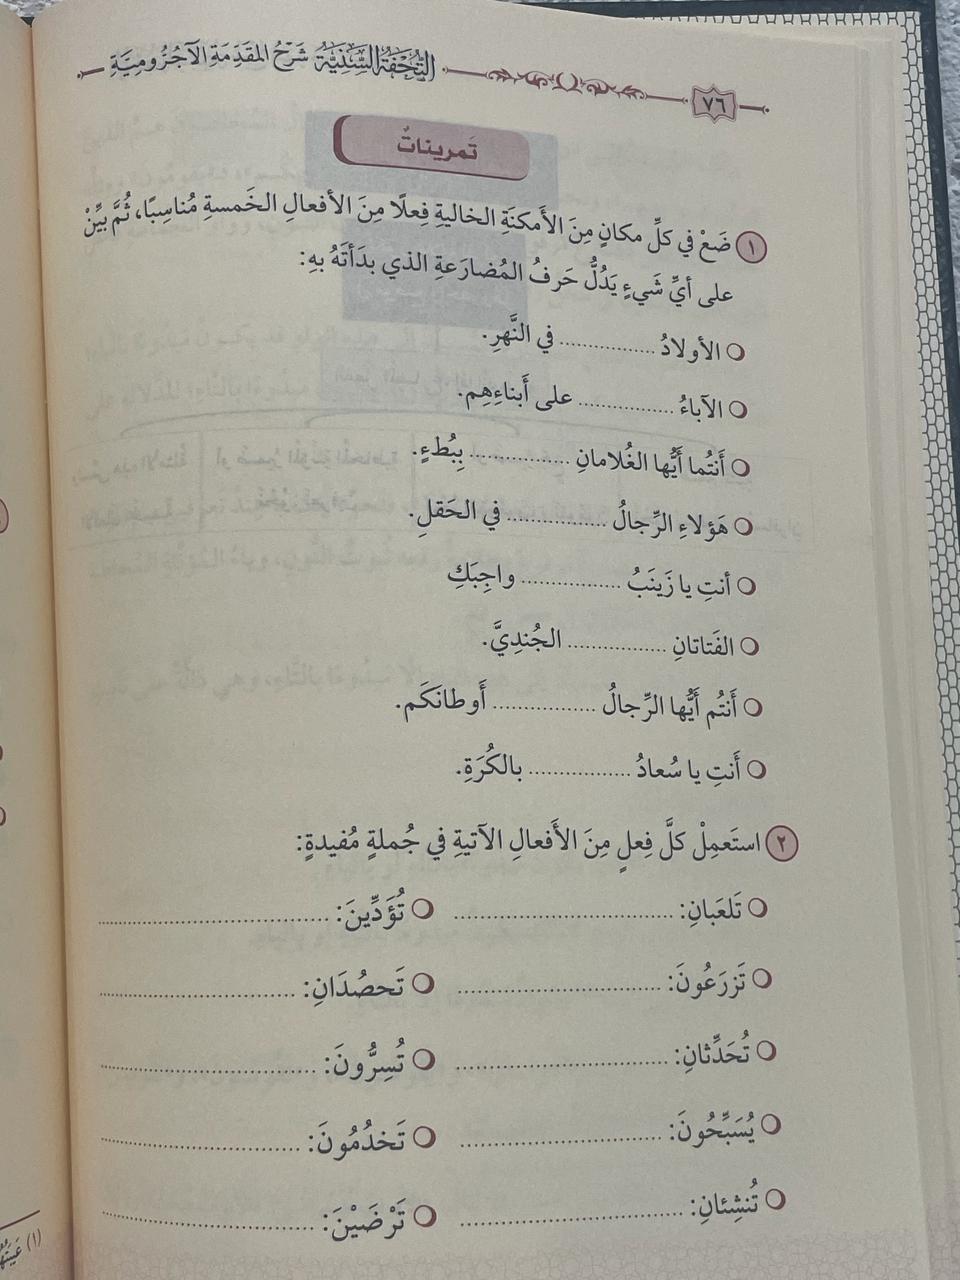 التُّحْفَةُ السَّنِيَّةُ شَرْحُ المُقَدِّمَةِ الآجُرُّومِيَّةِ
٧٦
تَمرينَاتٌ
١ ضَعْ في كلِّ مكانٍ مِنَ الأَمكنَةِ الخاليةِ فِعلًا مِنَ الأفعالِ الخَمسةِ مُناسِبًا، ثُمَّ بيِّنْ
على أيِّ شَيءٍ يَدُلُّ حَرفُ المُضارَعةِ الذي بدَأتَهُ بهِ:
الأولادُ ................ في النَّهرِ.
الآباءُ ................ على أَبناءِهِم.
أَنتُما أيُّها الغُلامانِ ................ بِبُطءٍ.
هَؤلاءِ الرِّجالُ ................ في الحَقلِ.
أنتِ يا زَينَبُ ................ واجِبَكِ
الفَتاتانِ ................ الجُندِيَّ.
أَنتُم أيُّها الرِّجالُ ................ أَوطانَكَم.
أَنتِ يا سُعادُ ................ بالكُرَةِ.
٢ استَعمِلْ كلَّ فِعلٍ مِنَ الأَفعالِ الآتيةِ في جُملةٍ مُفيدةٍ:
تَلعَبانِ: ................ تُؤَدِّينَ: ................
تَزرَعُونَ: ................ تَحصُدَانِ: ................
تُحَدِّثانِ: ................ تُسِرُّونَ: ................
يُسَبِّحُونَ: ................ تَخدُمُونَ: ................
تُنشِئانِ: ................ تَرْضَيْنَ: ................
(١)